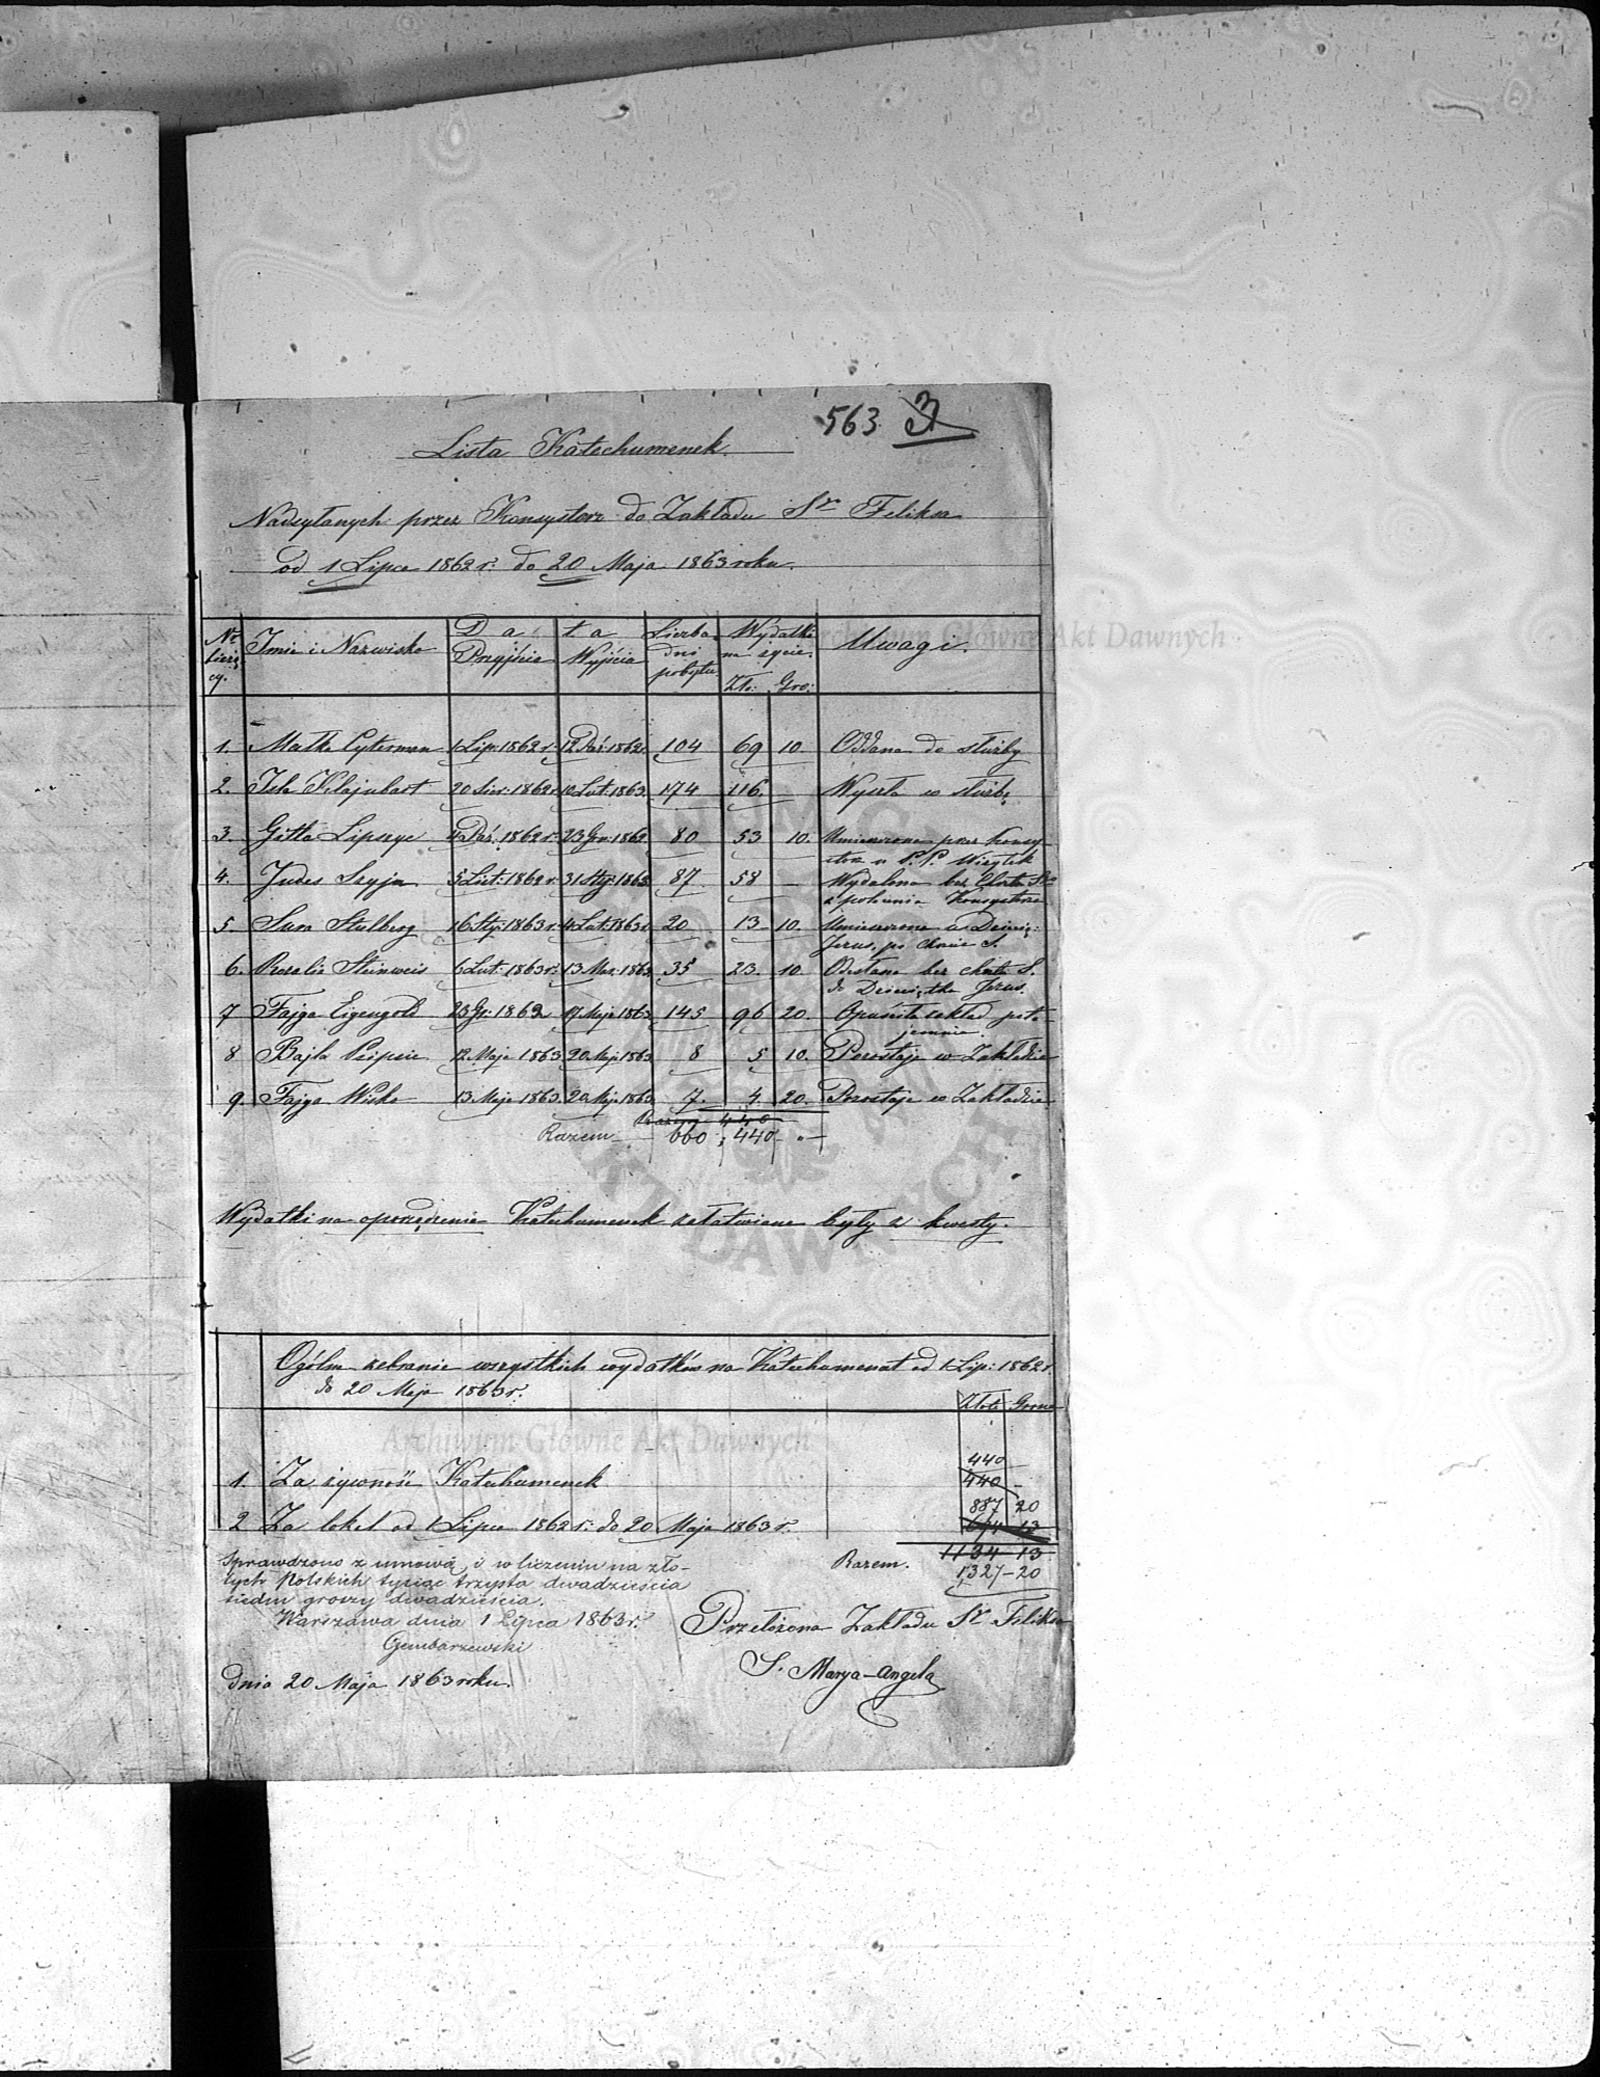 563. 3
Lista Katechumenek.
Nadsyłanych przez Konsystorz do Zakładu Sgo Feliksa
od 1 Lipca 1862 r. do 20 Maja 1863 roku.
Nr bieżący. Imie i Nazwisko Data Przyjścia Wyjścia Liczba dni pobytu Wydatki na życie. Złp: Gro: Uwagi.
Archiwum Główne Akt Dawnych
1. Małka Cyterman 1 Lip: 1862 r. 12 Paź: 1862. 104 69 10. Oddana do służby
2. Klajnbart 20 Sier: 1862 r 10 Lut: 1863. 174 116. Wyszła w służbę
3. Gitla Lipszyc 4 Paź: 1862 r. 23 Gru: 1862. 80 53 10. Umieszczona przez Konsy-
storz u P.P. Wizytek
4. Judes Szyja 5 List: 1862 r. 31 Sty: 1863 87 58 — Wydalona bez Chrztu Sgo
z polecenia Konsystorza
5. Sura Stulberg 16 Sty: 1863 r. 4 Lut: 1863 r 20 13 10. Umieszczona u Dzieciąt:
Jezus, po chrzcie S.
6. Rozalia Steinweis 6 Lut: 1863 r. 13 Mar: 1863. 35 23. 10. Odesłana bez chrztu S.
do Dzieciątka Jezus.
7 Fajga Eigengold 23 Gr: 1862 17 Maja 1863 145 96 20. Opuściła zakład pota-
jemnie.
8 Bajla 12 Maja 1863 20 Maja 1863 8 5 10. Pozostaje w Zakładzie
9. Fajga Wiska 13 Maja 1863 20 Maja 1863 7. 4. 20. Pozostaje w Zakładzie
Razem 440
Razem 660 440 " —
Wydatki na oporządzenie Katechumenek załatwiane były z kwesty.
Ogólne zebranie wszystkich wydatków na Katechumenat od 1 Lip: 1862 r.
do 20 Maja 1863 r.
Złote Grosze
Archiwum Główne Akt Dawnych
440 —
1. Za żywność Katechumenek 440 —
887 20
2 Za lokal od 1 Lipca 1862 r. do 20 Maja 1863 r. 694 13
Razem. 1134 13
1327 — 20
Sprawdzono z umową i w liczeniu na zło-
tych Polskich tysiąc trzysta dwadzieścia
siedm groszy dwadzieścia.
Warszawa dnia 1 Lipca 1863 r.
Gembarzewski
Przełożona Zakładu Sgo Feliksa
S. Marya-Angela
Dnia 20 Maja 1863 roku.